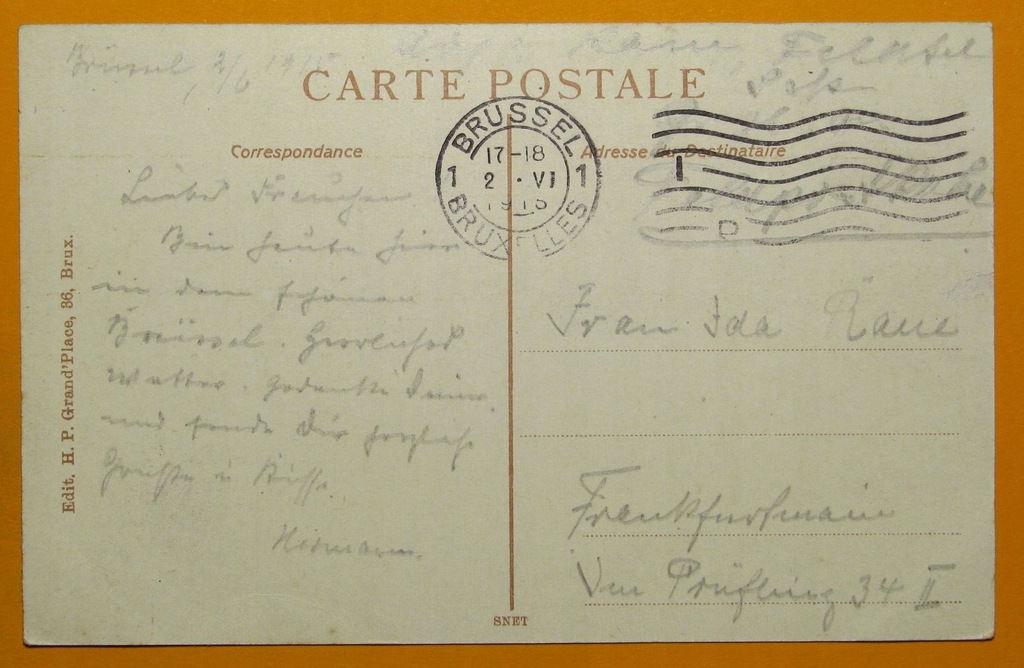 Brüssel, 2/6 1915
Feldpost
CARTE POSTALE
BRUSSEL
17-18
1 2 · VI 1
1915
BRUXELLES
Correspondance
Adresse du Destinataire
Liebes Frauchen
Bin heute hier
in dem schönen
Brüssel. Herrliches
Wetter. Gedenke Deiner
und sende Dir herzliche
Grüße u Küsse.
Hermann.
Frau Ida
Frankfurtmain
Im Prüfling 34 II
Edit. H. P. Grand'Place, 36, Brux.
SNET